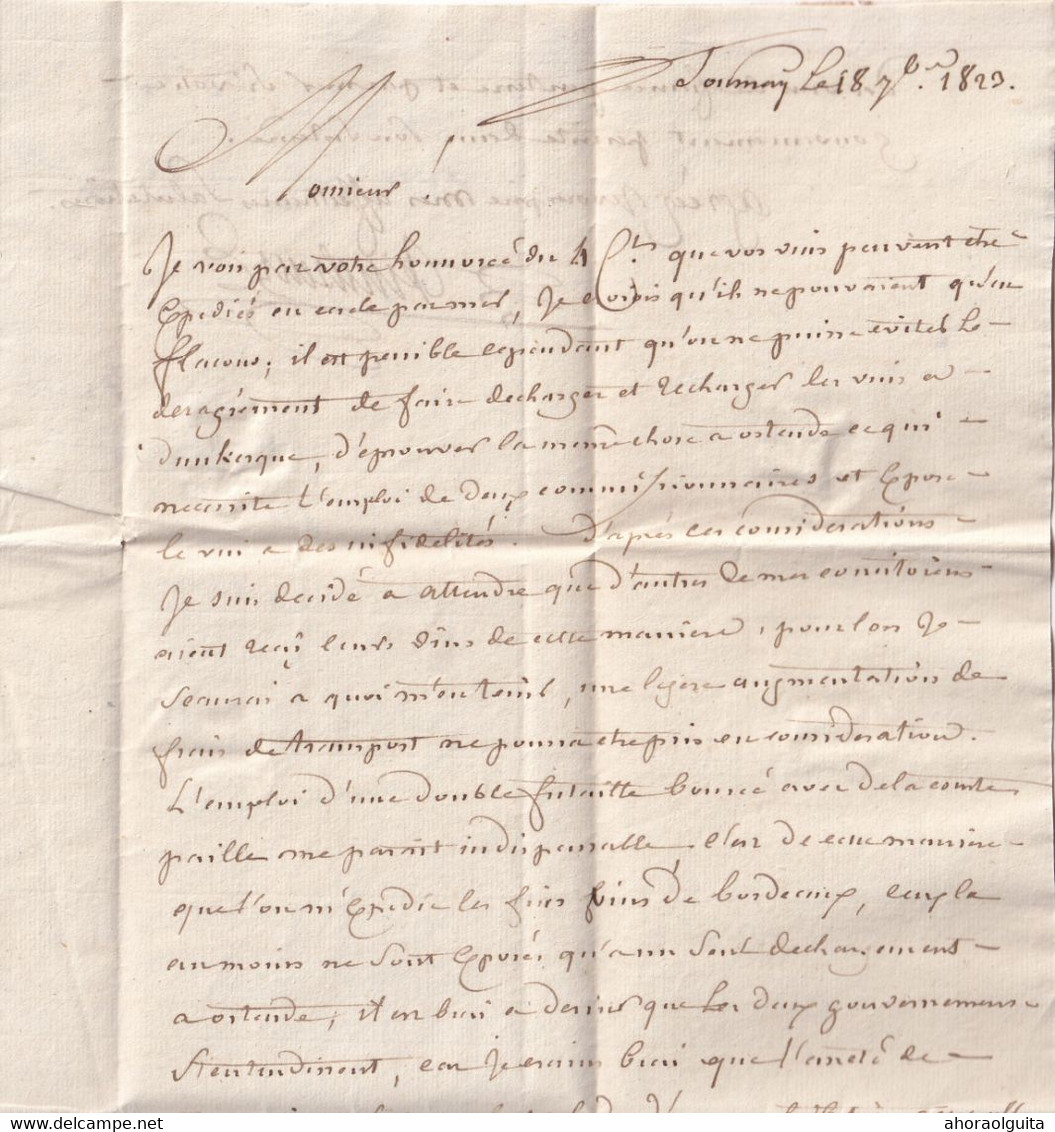 Tournay le 18 7bre. 1823.
Monsieur
Je vois par votre honnorée du 4 Ct. que vos vins peuvent etre
Expediés en cercle par mer, Je croiois qu'ils ne pouvaient qu'en
flacons; il est penible cependant qu'on ne puisse eviter le
desagrément de faire decharger et recharger les vins a
dunkerque, d'éprouver la meme chose a ostende ce qui
necessite l'emploi de deux commissionnaires et Expose
le vin a des infidelités. D'après ces considerations
Je suis decidé a attendre que d'autres de mes concitoiens
aient reçu leurs vins de cette maniere, pour lors Je
scaurai a quoi m'en tenir, une legere augmentation de
frais de transport ne pourra etre pris en considération.
L'emploi d'une double futaille bourré avec de la
paille me parait indispensable, c'est de cette maniere
que l'on m'Expedie les fins vins de bordeaux, ceux la
au moins ne sont Exposés qu'a un seul dechargement
a ostende; il est bien a desirer que les deux gouvernemens
s'entendissent, car je crains bien que l'arreté de
ahoraolguita